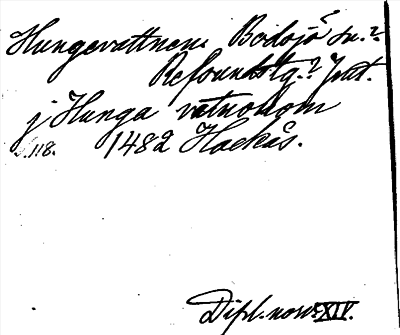 Hungevattnen. Bodsjö sn.?
Refsunds tg.? Jmt.
j Hunga vatnokom
s. 118. 1482 Hackås.
Dipl. norv. XIV.